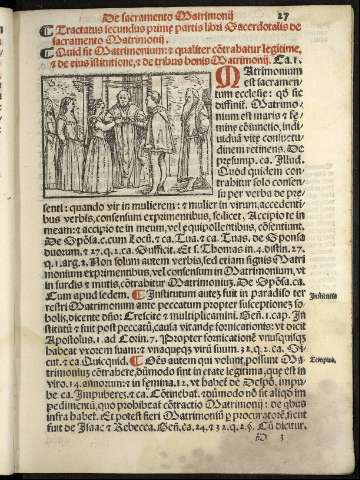 De sacramento Matrimonij
27
Tractatus secundus prime partis libri Sacerdotalis de
sacramento Matrimonij.
Quid sit Matrimonium: et qualiter cōtrahatur legitime,
et de eius īstitutione, et de tribus bonis Matrimonij. Ca. 1.
MAtrimonium
est sacramen-
tum ecclesie: qd sic
diffinit. Matrimo-
nium est maris et fe-
mine cōiunctio, indi-
uiduā vite consuetu-
dinem retinens. De
presump. ca. Illud.
Quod quidem con-
trahitur solo consen-
su per verba de pre-
senti: quando vir in mulierem: et mulier in virum, accedenti-
bus verbis, consensum exprimentibus, scilicet, Accipio te in
meam: et accipio te in meum, vel equipollentibus, cōsentiunt.
De Spōsa. c. cum Locū. et ca. Tua. et ca. Tuas. de Sponsa
duorum, et 27. q. 2. ca. Sufficit. Et s. Thomas in 4. distin. 27.
q. 1. arg. 2. Non solum autem verbis, sed etiam signis Matri
monium exprimentibus, vel consensum in Matrimonium, vt
in surdis et mutis, cōtrahitur Matrimoniū. De Spōsa. ca.
Cum apud sedem. Institutum autem fuit in paradiso ter
restri Matrimonium ante peccatum propter susceptionem so-
bolis, dicente dño: Crescite et multiplicamini. Geñ. 1. cap. In
stitutū et fuit post peccatū, causa vitande fornicationis: vt dicit
Apostolus. 1. ad Corin. 7. Propter fornicationē vnusquisque
habeat vxorem suam: et vnaqueque virū suum. 32. q. 2. ca. Si-
cut. et ca. Quicquid. Oēs autem qui volunt, possunt Ma-
trimonium cōtrahere, dūmodo sint in etate legitima, que est in
viro. 14. annorum: et in femina. 12. vt habet de Despōs. impu-
be. ca. Impuberes. et ca. Cōtinebat. et dūmodo nō sit aliqd im
pedimentū, quo prohibeat cōtractio Matrimonij: de quibus
infra habet. Et potest fieri Matrimoniū per procuratorē, sicut
fuit de Isaac et Rebecca. Geñ. ca. 24. et 32. q. 2. §. Cū dicitur.
Institutio
Tempus.
D 3